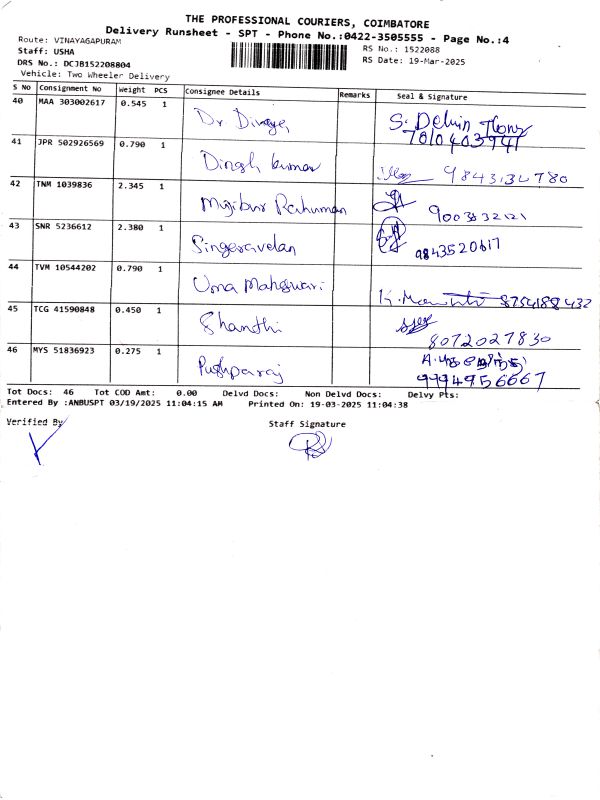 THE PROFESSIONAL COURIERS, COIMBATORE
Delivery Runsheet - SPT - Phone No.:0422-3505555 - Page No.:4
Route: VINAYAGAPURAM
RS No.: 1522088
Staff: USHA
RS Date: 19-Mar-2025
DRS No.: DCJB152208804
Vehicle: Two Wheeler Delivery
S No Consignment No Weight PCS Consignee Details Remarks Seal & Signature
40 MAA 303002617 0.545 1 Dr. S. Delvin
7010403941
41 JPR 502926569 0.790 1 Dinesh kumar 9843132780
42 TNM 1039836 2.345 1 Mujibur Rahuman 9003632121
43 SNR 5236612 2.380 1 Singaravelan 9843520617
44 TVM 10544202 0.790 1 Uma Maheswari K. 8754188432
45 TCG 41590848 0.450 1 Shanthi
8072027830
46 MYS 51836923 0.275 1 Pushparaj
9994956667
Tot Docs: 46 Tot COD Amt: 0.00 Delvd Docs: Non Delvd Docs: Delvy Pts:
Entered By :ANBUSPT 03/19/2025 11:04:15 AM Printed On: 19-03-2025 11:04:38
Verified By Staff Signature